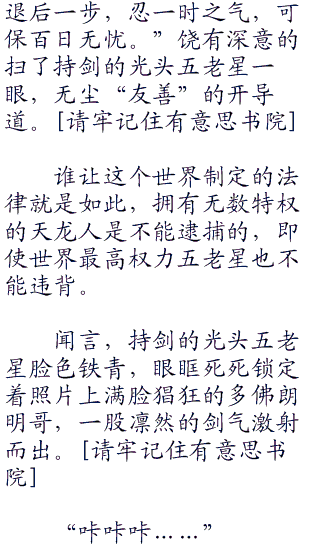 退后一步，忍一时之气，可
保百日无忧。”饶有深意的
扫了持剑的光头五老星一
眼，无尘“友善”的开导
道。[请牢记住有意思书院]
谁让这个世界制定的法
律就是如此，拥有无数特权
的天龙人是不能逮捕的，即
使世界最高权力五老星也不
能违背。
闻言，持剑的光头五老
星脸色铁青，眼眶死死锁定
着照片上满脸猖狂的多佛朗
明哥，一股凛然的剑气激射
而出。[请牢记住有意思书
院]
“咔咔咔……”